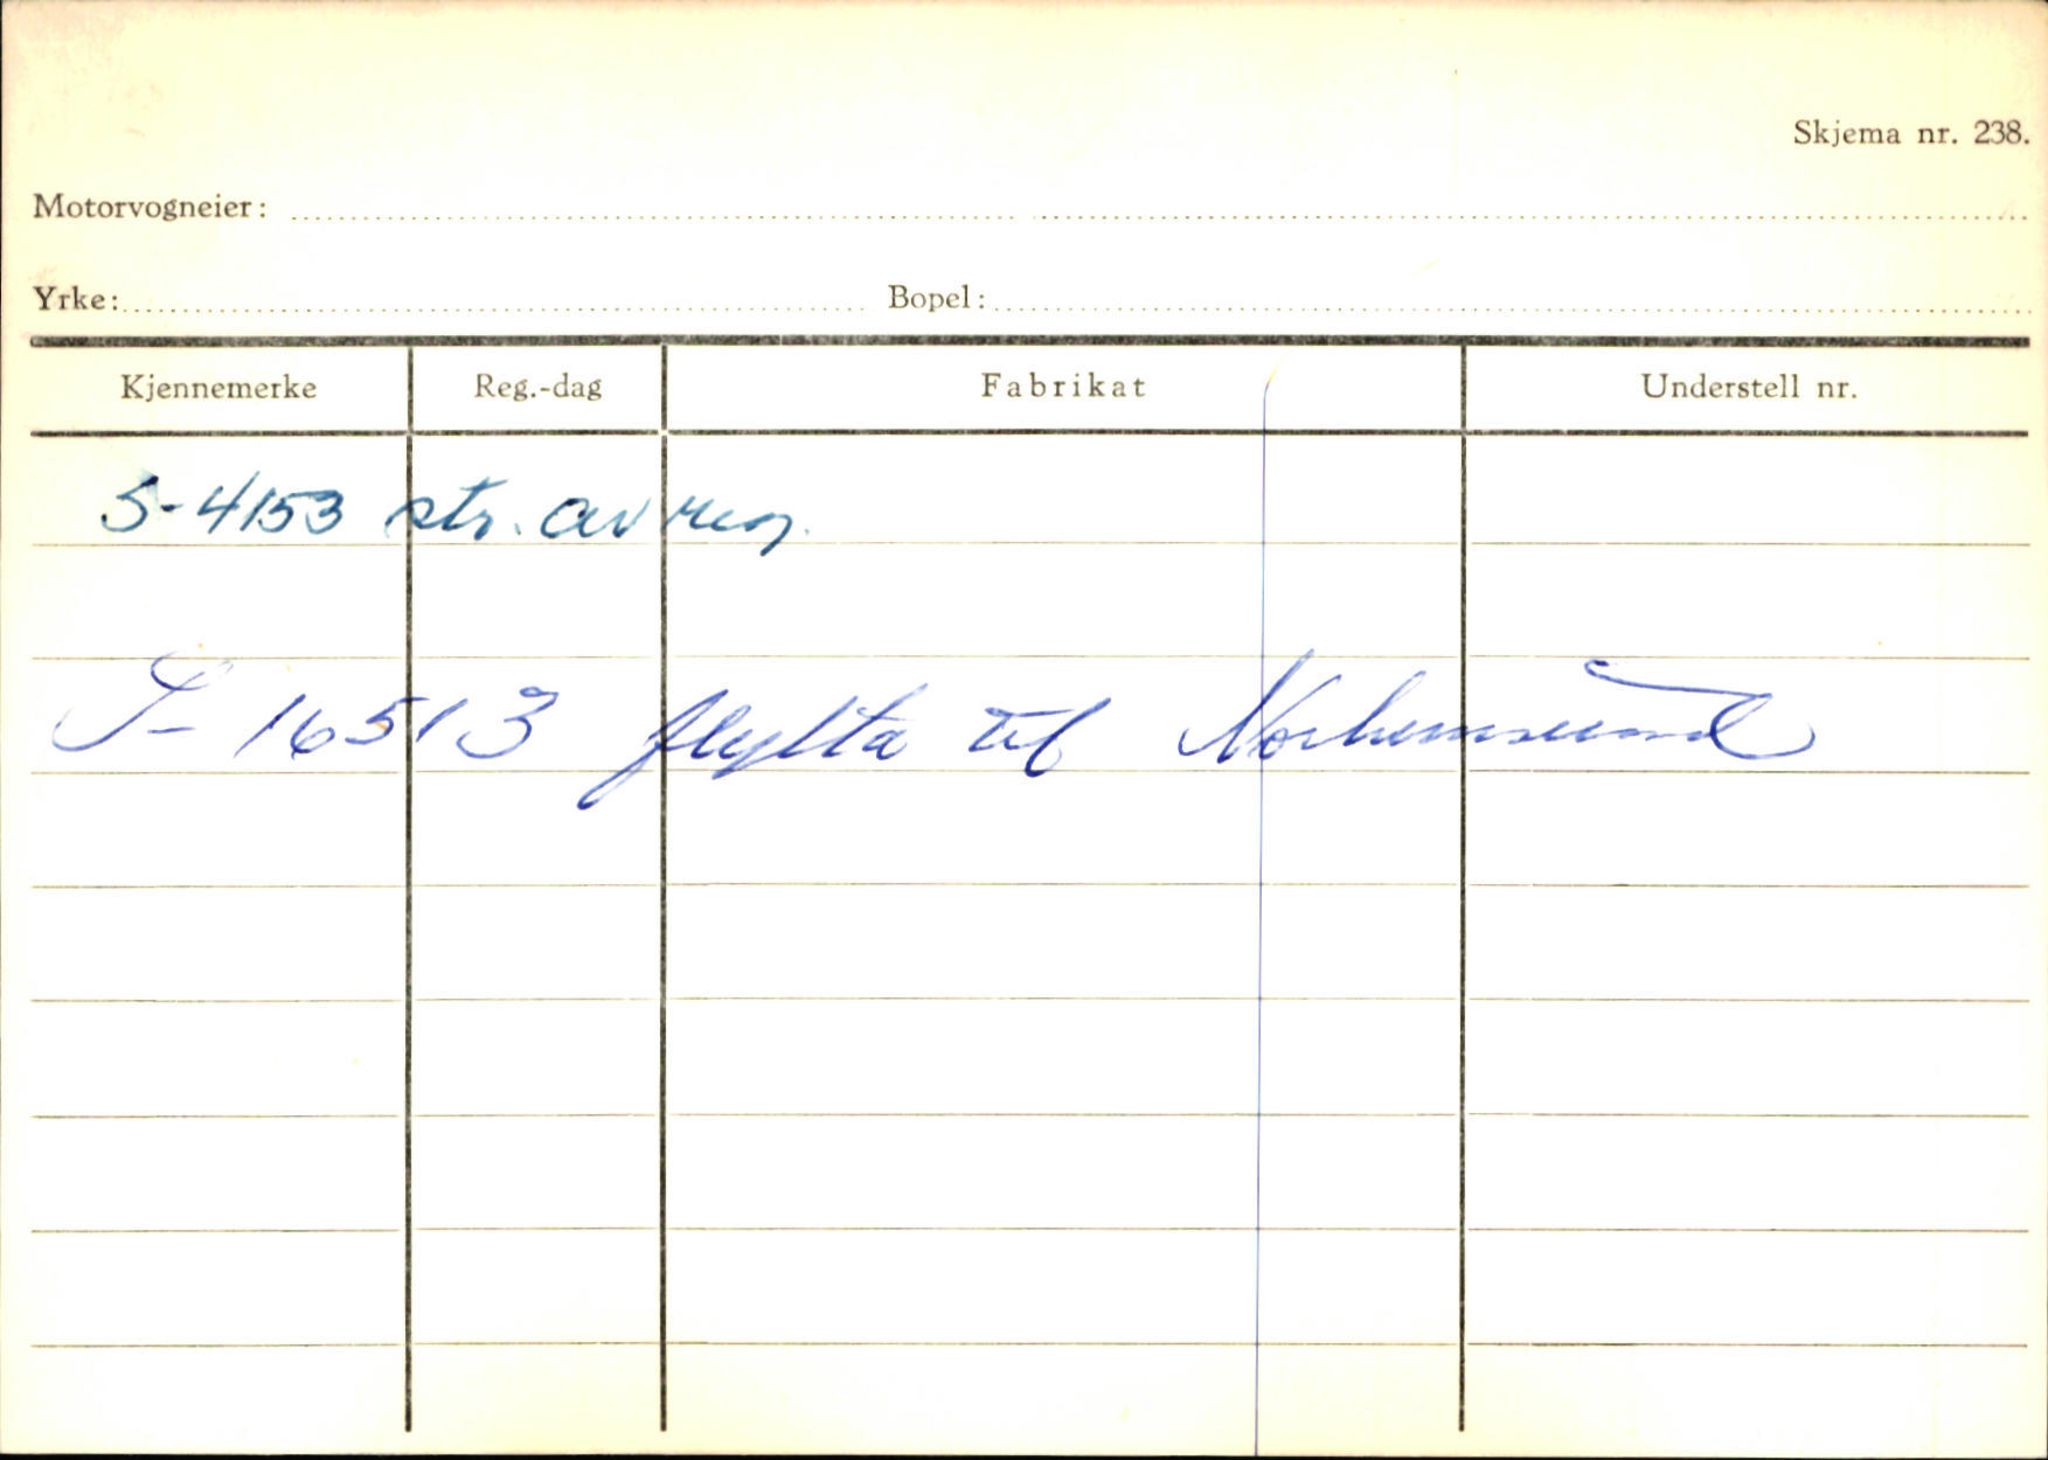 Skjema nr. 238.
Motorvogneier:
Yrke: Bopel:
Kjennemerke Reg.-dag Fabrikat Understell nr.
S-4153 str. av reg.
S-16513 flytta til Norheimsund